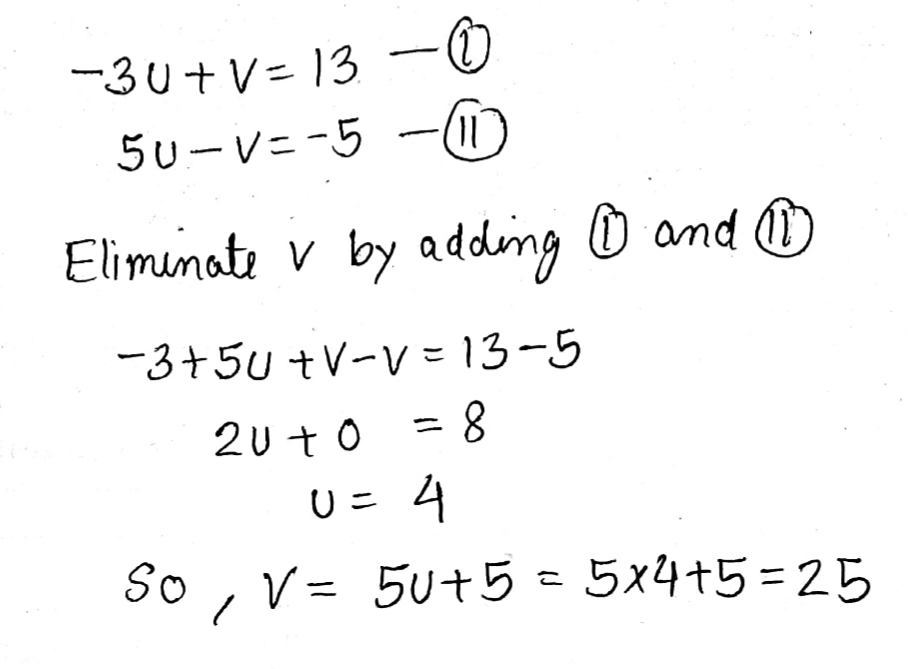 -3u+v=13 —Ⓘ
5u-v=-5 —Ⓘⓘ
Eliminate v by adding Ⓘ and Ⓘⓘ
-3+5u+v-v=13-5
2u+0 =8
u= 4
So, v= 5u+5 = 5x4+5=25